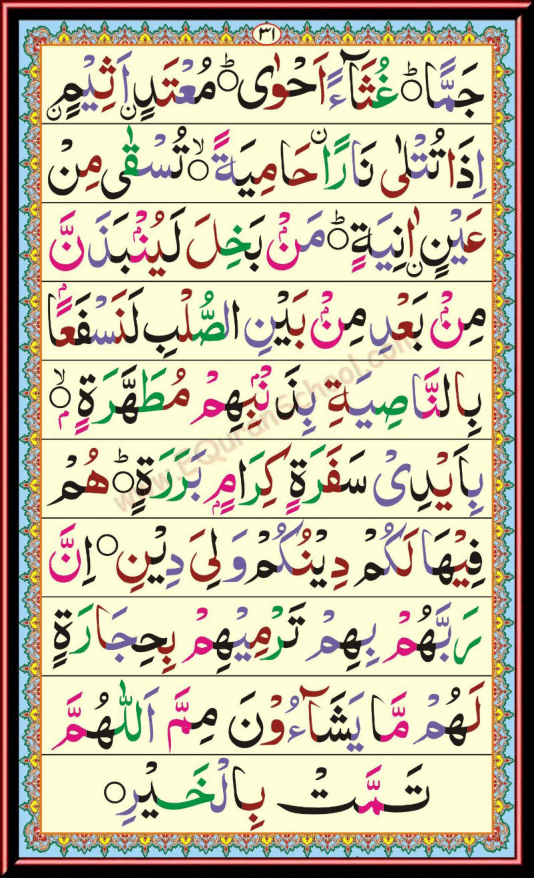 ٣١
جَمًّا ؕ غُثَآءً اَحْوٰى ؕ مُعْتَدٍ اَثِيْمٍ ۙ
اِذَا تُتْلٰى نَارًا حَامِيَةً ۙ تُسْقٰى مِنْ
عَيْنٍ اٰنِيَةٍ ؕ مَنْۢ بَخِلَ لَيُنْۢبَذَنَّ
مِنْۢ بَعْدِ مِنْۢ بَيْنِ الصُّلْبِ لَنَسْفَعًاۢ
بِالنَّاصِيَةِ بِذَنْۢبِهِمْ مُطَهَّرَةٍۭ ۙ
بِاَيْدِىْ سَفَرَةٍ كِرَامٍۭ بَرَرَةٍ ؕ هُمْ
فِيْهَا لَكُمْ دِيْنُكُمْ وَلِىَ دِيْنِ ۝ اِنَّ
رَبَّهُمْ بِهِمْ تَرْمِيْهِمْ بِحِجَارَةٍ
لَهُمْ مَّا يَشَآءُوْنَ مِمَّ اَللّٰهُمَّ
تَمَّتْ بِالْخَيْرِ ۝
www.EQuranSchool.com